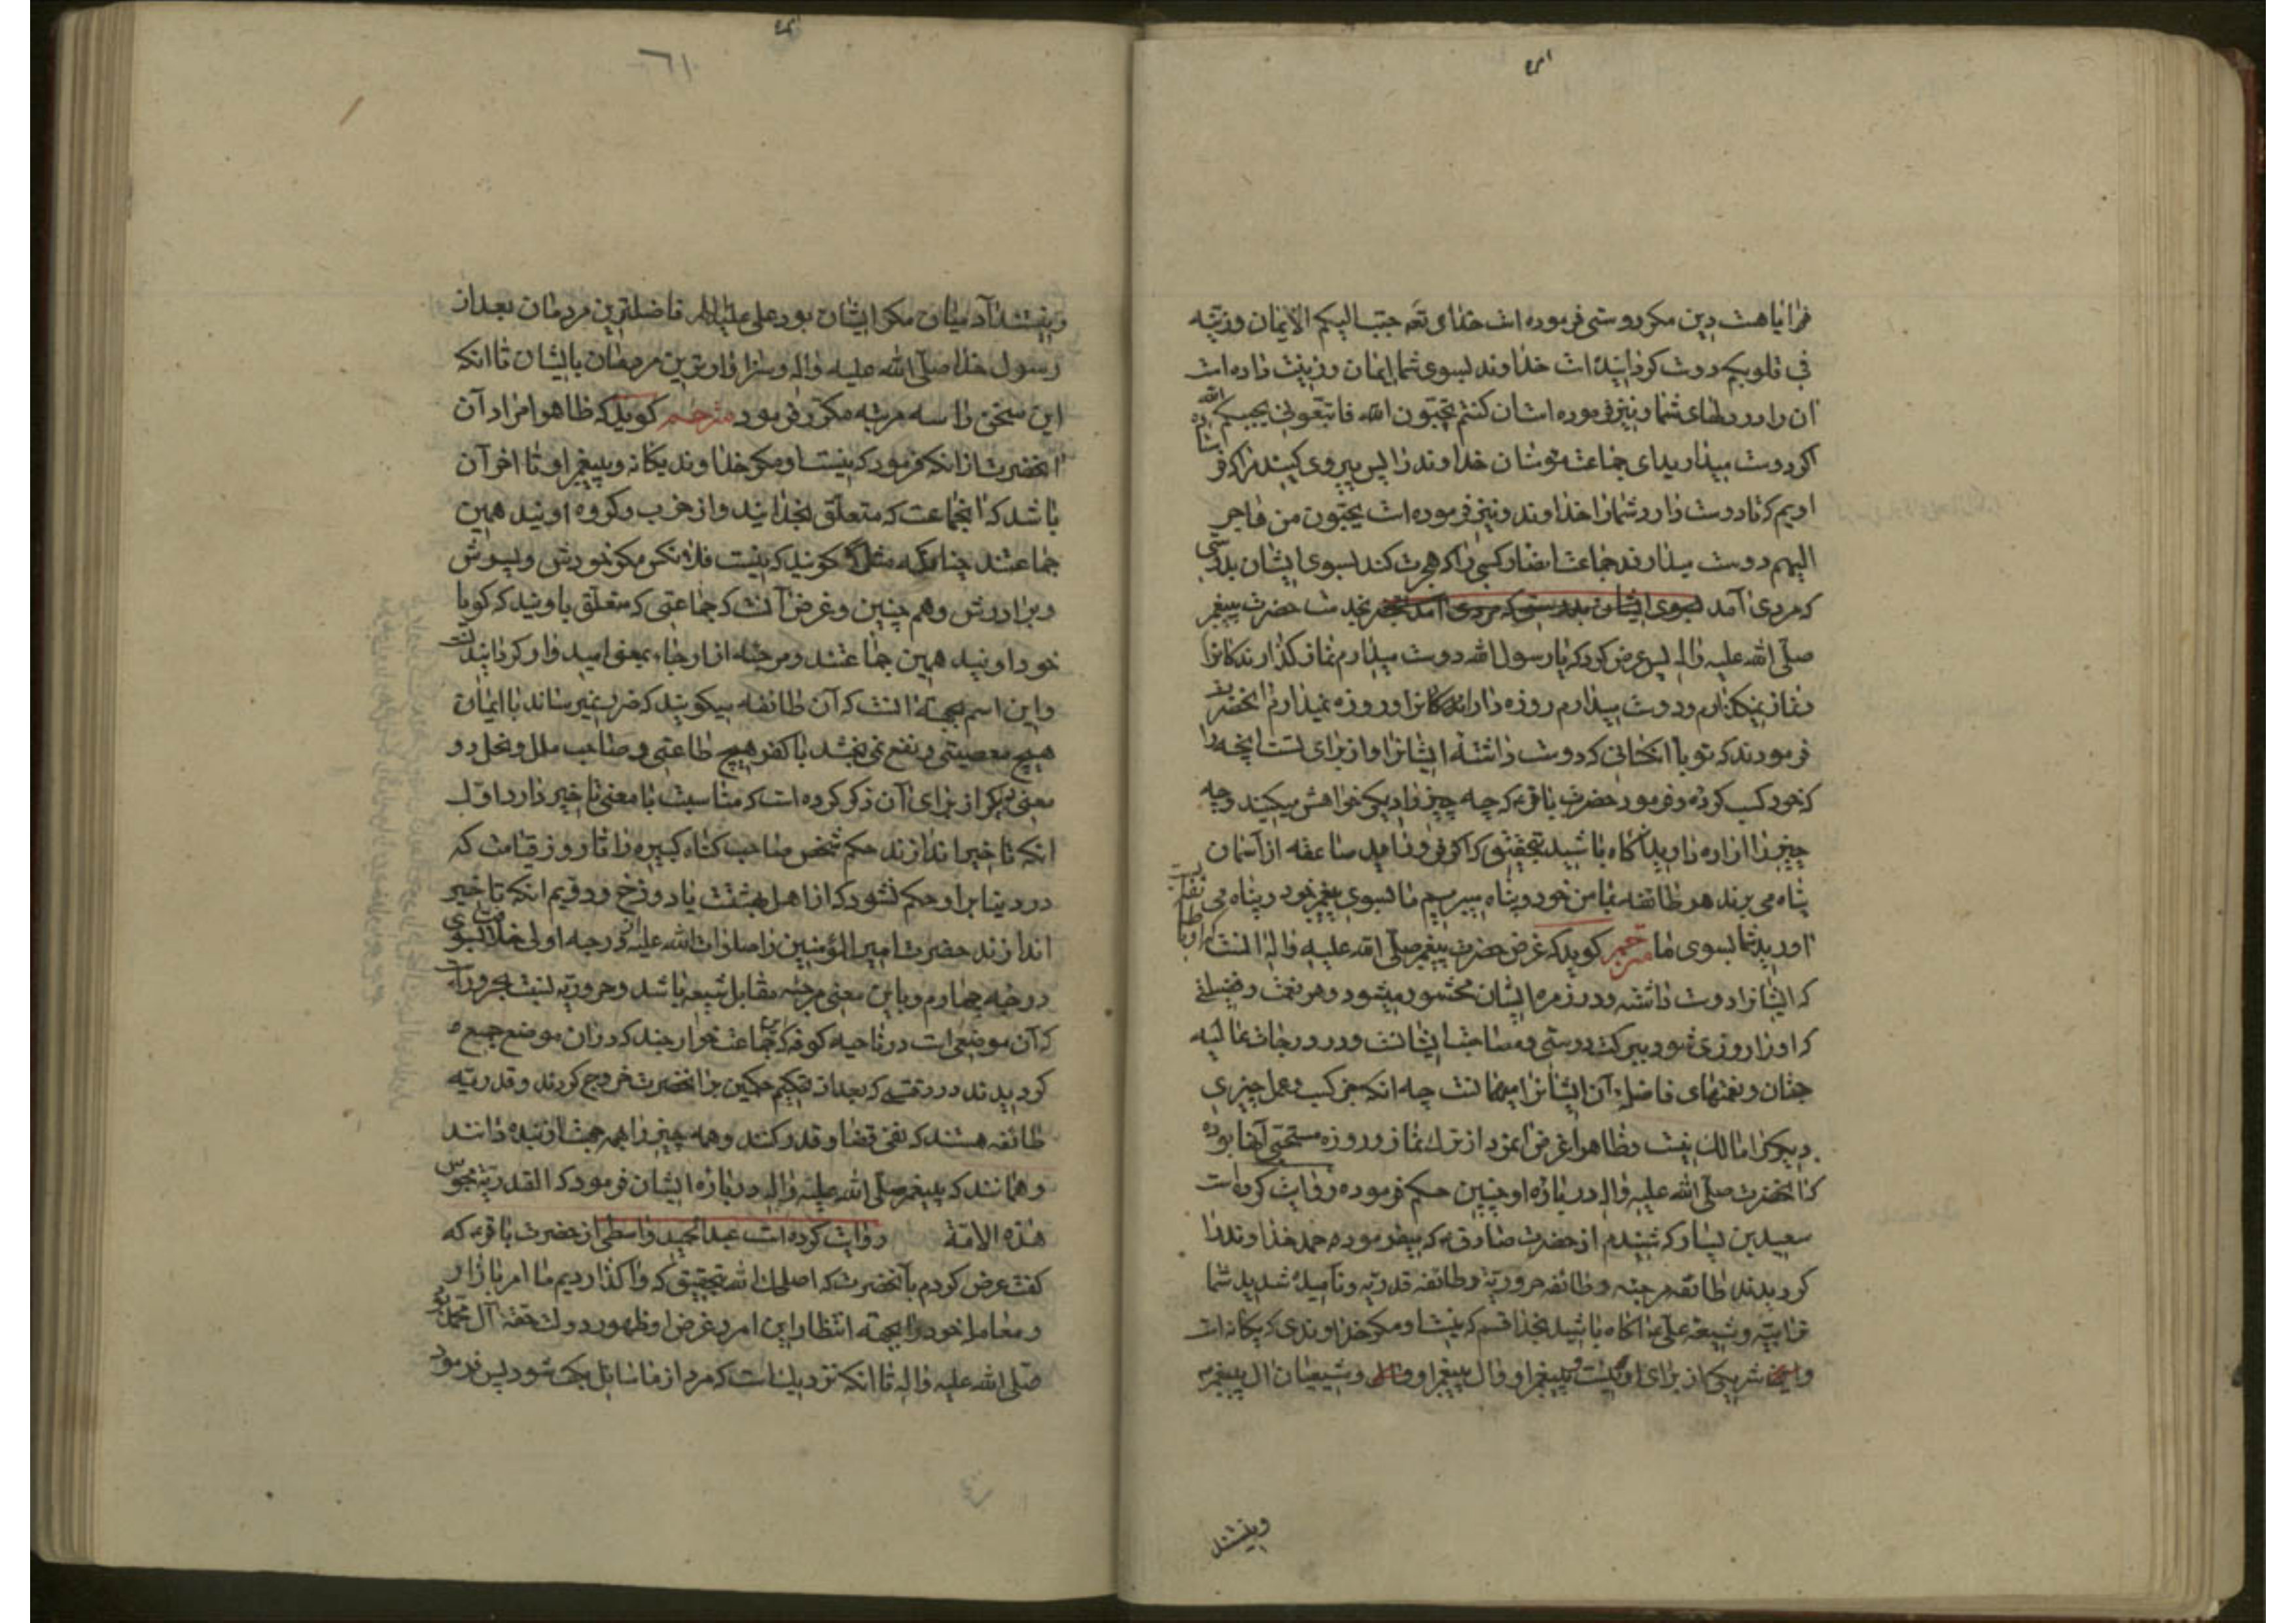 فرا ایا هست دین مکر دوستی فرموده است خدای تعه حبب الیکم الایمان وزینه
فی قلوبکم دوست کردانیده است خداوند بسوی شما ایمان وزینت داده است
ان را در دلهای شما و نیز فرموده است ان کنتم تحبون الله فاتبعونی یحببکم الله
اکر دوست میدارید ای جماعت خداوند را پس پیروی کنید مرا که
تا دوست دارد شمارا خداوند و نیز فرموده است یحبون من هاجر
الیهم دوست میدارند جماعت انصار کسی را که هجرت کند بسوی ایشان بدرستی
که مردی آمد بخدمت حضرت پیغمبر
صلی الله علیه واله پس عرض کرد که یا رسول الله دوست میدارم نماز کذارندکانرا
ونماز نمیکذارم ودوست میدارم روزه دارندکانرا وروزه نمیدارم انحضرت
فرمودند که تو با انکسانی که دوست داشتهٔ ایشانرا واز برای تست انچه را
که خود کسب کرده وفرمود حضرت باقر که چه چیز را دیکر خواهش میکنید وچه
چیز را اراده دارید اکاه باشید بتحقیق که اکر فرود آمد صاعقه از آسمان
پناه می برند هر طائفه بمامن خود وپناه میبریم ما بسوی پیغمبر خود وپناه می
اورید شما بسوی ما مترجم کوید که غرض حضرت پیغمبر صلی الله علیه واله انست که
ایشانرا دوست داشته ودر زمره ایشان محشور میشود وهر نعمت وفضیلتی
که اورا روزی شود ببرکت دوستی ومصاحبت ایشانست ودر درجات عالیه
جنان ونعمتهای فاضله آن ایشانرا مهمانست چه انکه جز کسب وعمل چیزی
دیکر را مالک نیست وظاهرا غرض انمرد از ترک نماز وروزه مستحبی آنها بوده
که انحضرت صلی الله علیه واله در باره او چنین حکم فرموده روایت کرده است
سعید بن یسار که شنیدم از حضرت صادق که میفرموده حمد خداوند را
کردیدند طائفه مرجئه وطائفه حروریه وطائفه قدریه ونامیده شدید شما
ترابیه وشیعه علی اکاه باشید بخدا قسم که نیست او مکر خداوندی که یکانه است
شریکی از برای او نیست وپیغمبر او وال پیغمبر او وشیعیان ال پیغمبر
وینستند
ونیستند آدمیان مکر ایشان بود علی علیه السلام فاضلترین مردمان بعد از
رسول خدا صلی الله علیه واله وسزاوارترین مردمان بایشان تا انکه
این سخن را سه مرتبه مکرر فرمود مترجم کوید که ظاهرا مراد آن
انحضرت از انکه فرمود که نیست او مکر خداوند یکانه وپیغمبر او تا اخر آن
باشد که انجماعت که متعلق بخدایند واز حزب وکروه اویند همین
جماعتند چنانکه مثلا کویند که نیست فلانکس مکر خودش وپسرش
وبرادرش وهم چنین وغرض آنست که جماعتی که متعلق باویند که کویا
خود اویند همین جماعتند ومرجئه از ارجاء بمعنی امیدوار کردانیدنست
واین اسم بجهته انست که آن طائفه میکویند که ضرر نمیرساند با ایمان
هیچ معصیتی ونفع نمی بخشد با کفر هیچ طاعتی وصاحب ملل ونحل دو
معنی دیکر از برای آن ذکر کرده است که مناسبت با معنی تاخیر دارد اول
انکه تاخیر اندازند حکم شخص صاحب کناه کبیره را تا روز قیامت که
در دنیا بر او حکم نشود که از اهل بهشت یا دوزخ ودویم انکه تاخیر
اندازند حضرت امیر المؤمنین را صلوات الله علیه از درجه اولی بسوی
درجه چهارم وباین معنی مرجئه مقابل شیعه باشد وحروریه نسبت بحروراست
که آن موضعی است در ناحیه کوفه که جماعت خوارجند که در ان موضع جمع
کردیدند در وقتی که بعد از تحکیم حکمین بر انحضرت خروج کردند وقدریه
طائفه هستند که نفی قضا وقدر کنند وهمه چیز را بهمه جهت از بنده دانند
وهمانند که پیغمبر صلی الله علیه واله در باره ایشان فرمود که القدریة مجوس
هذه الامة روایت کرده است عبد الحمید واسطی از حضرت باقر که
کفت عرض کردم بآنحضرت که اصلحک الله بتحقیق که واکذاردیم ما امر بازار
ومعامله خود را بجهته انتظار این امر وغرض او ظهور دولت حقه آل محمد بود
صلی الله علیه واله تا انکه نزدیک است که مرد از ما سایل بکف شود پس فرمود